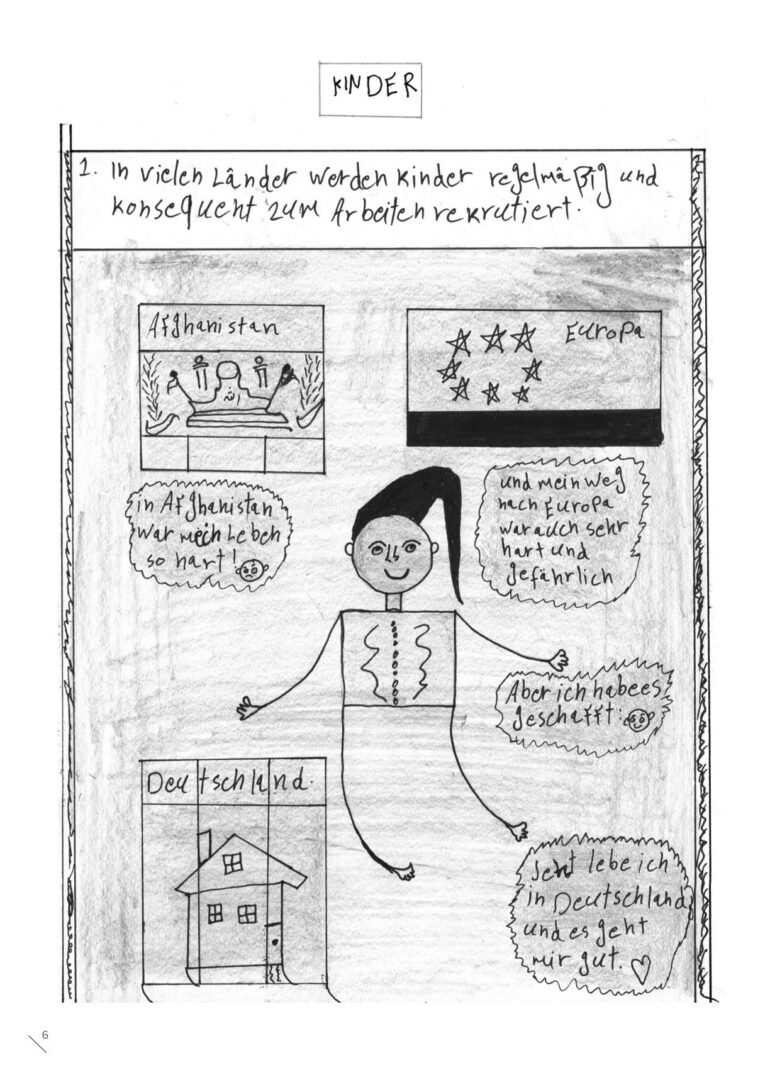 KINDER
1. In vielen Länder werden Kinder regelmäßig und
konsequent zum Arbeiten rekrutiert.
Afghanistan
الله
Europa
in Afghanistan
war mein Leben
so hart!
und mein Weg
nach Europa
war auch sehr
hart und
gefährlich
Aber ich habe es
geschafft.
Deutschland.
lebe ich
in Deutschland
und es geht
mir gut.
6